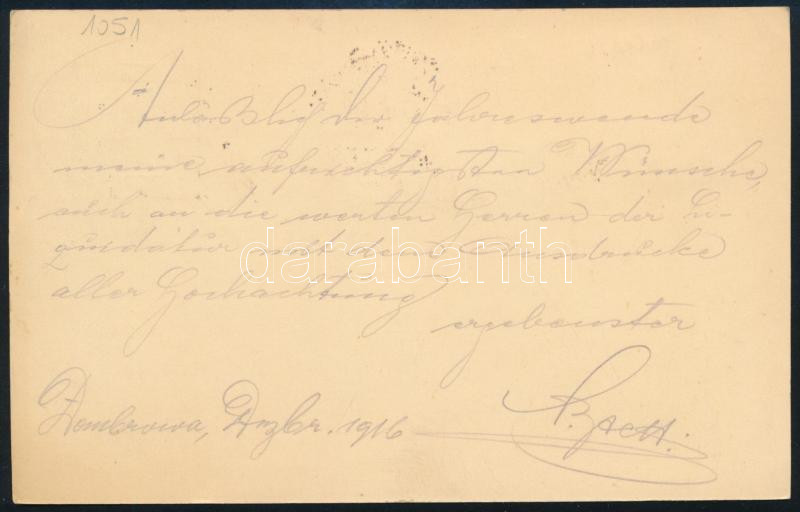 1051
Anläßlich der Jahreswende
meine aufrichtigsten Wünsche,
auch an die werten Herren der Li-
quidatur mit dem Ausdrucke
aller Hochachtung
ergebenster
Dombrowa, Dezbr. 1916
darabanth